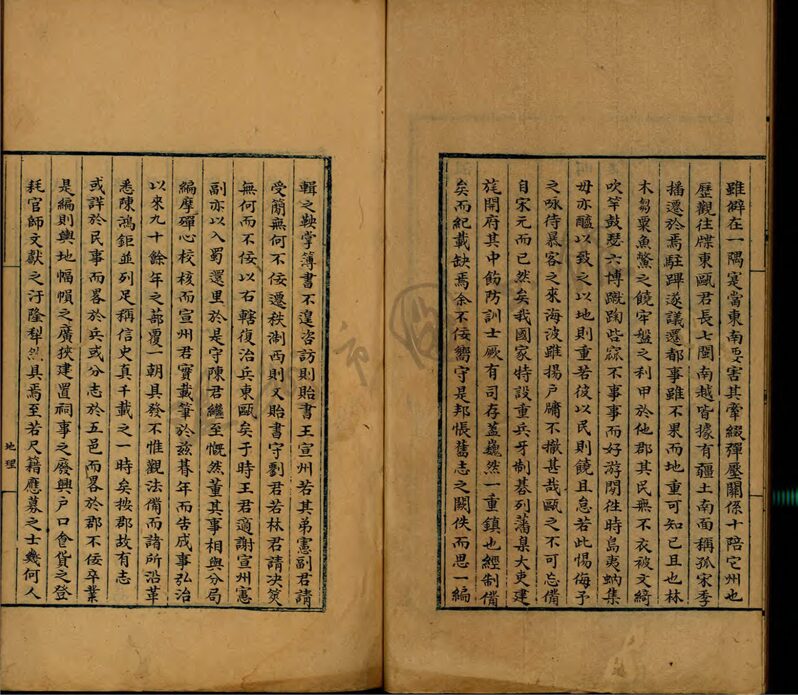 雖僻在一隅寔當東南要害其牽綴彈壓關係十陪它州也
歷觀往牒東甌君長七閩南越皆據有疆土南面稱孤宋季
播遷於焉駐蹕遂議遷都事雖不果而地重可知已且也林
木芻粟魚鱉之饒牢盤之利甲於他郡其民無不衣被文綺
吹竽鼓瑟六博蹴踘呰窳不事事而好游閒徃時島夷蚋集
毋亦醢以致之以地則重若彼以民則饒且怠若此惕侮予
之咏侍暴客之來海波雖揚戶牖不撤甚哉甌之不可忘備
自宋元而已然矣我國家特設重兵牙制碁列藩臬大吏建
旄開府其中飭防訓士厥有司存蓋巍然一重鎮也經制備
矣而紀載缺焉余不佞嚮守是邦悵舊志之闕佚而思一編
輯之鞅掌簿書不遑咨訪則貽書王宣州若其弟憲副君請
受簡無何不佞遷秩淛西則又貽書守劉君若林君請决筴
無何而不佞以右轄復治兵東甌矣于時王君適謝宣州憲
副亦以入蜀還里於是守陳君繼至慨然董其事相與分局
編摩殫心校核而宣州君實載筆於茲暮年而告成事弘治
以來九十餘年之蔀覆一朝具發不惟觀法備而諸所沿革
悉陳鴻鉅並列足稱信史真千載之一時矣按郡故有志
或詳於民事而畧於兵或分志於五邑而畧於郡不佞卒業
是編則輿地幅幀之廣狹建置祠事之廢興戶口食貨之登
耗官師文獻之汙隆犁然具焉至若尺籍應募之士幾何人
地理